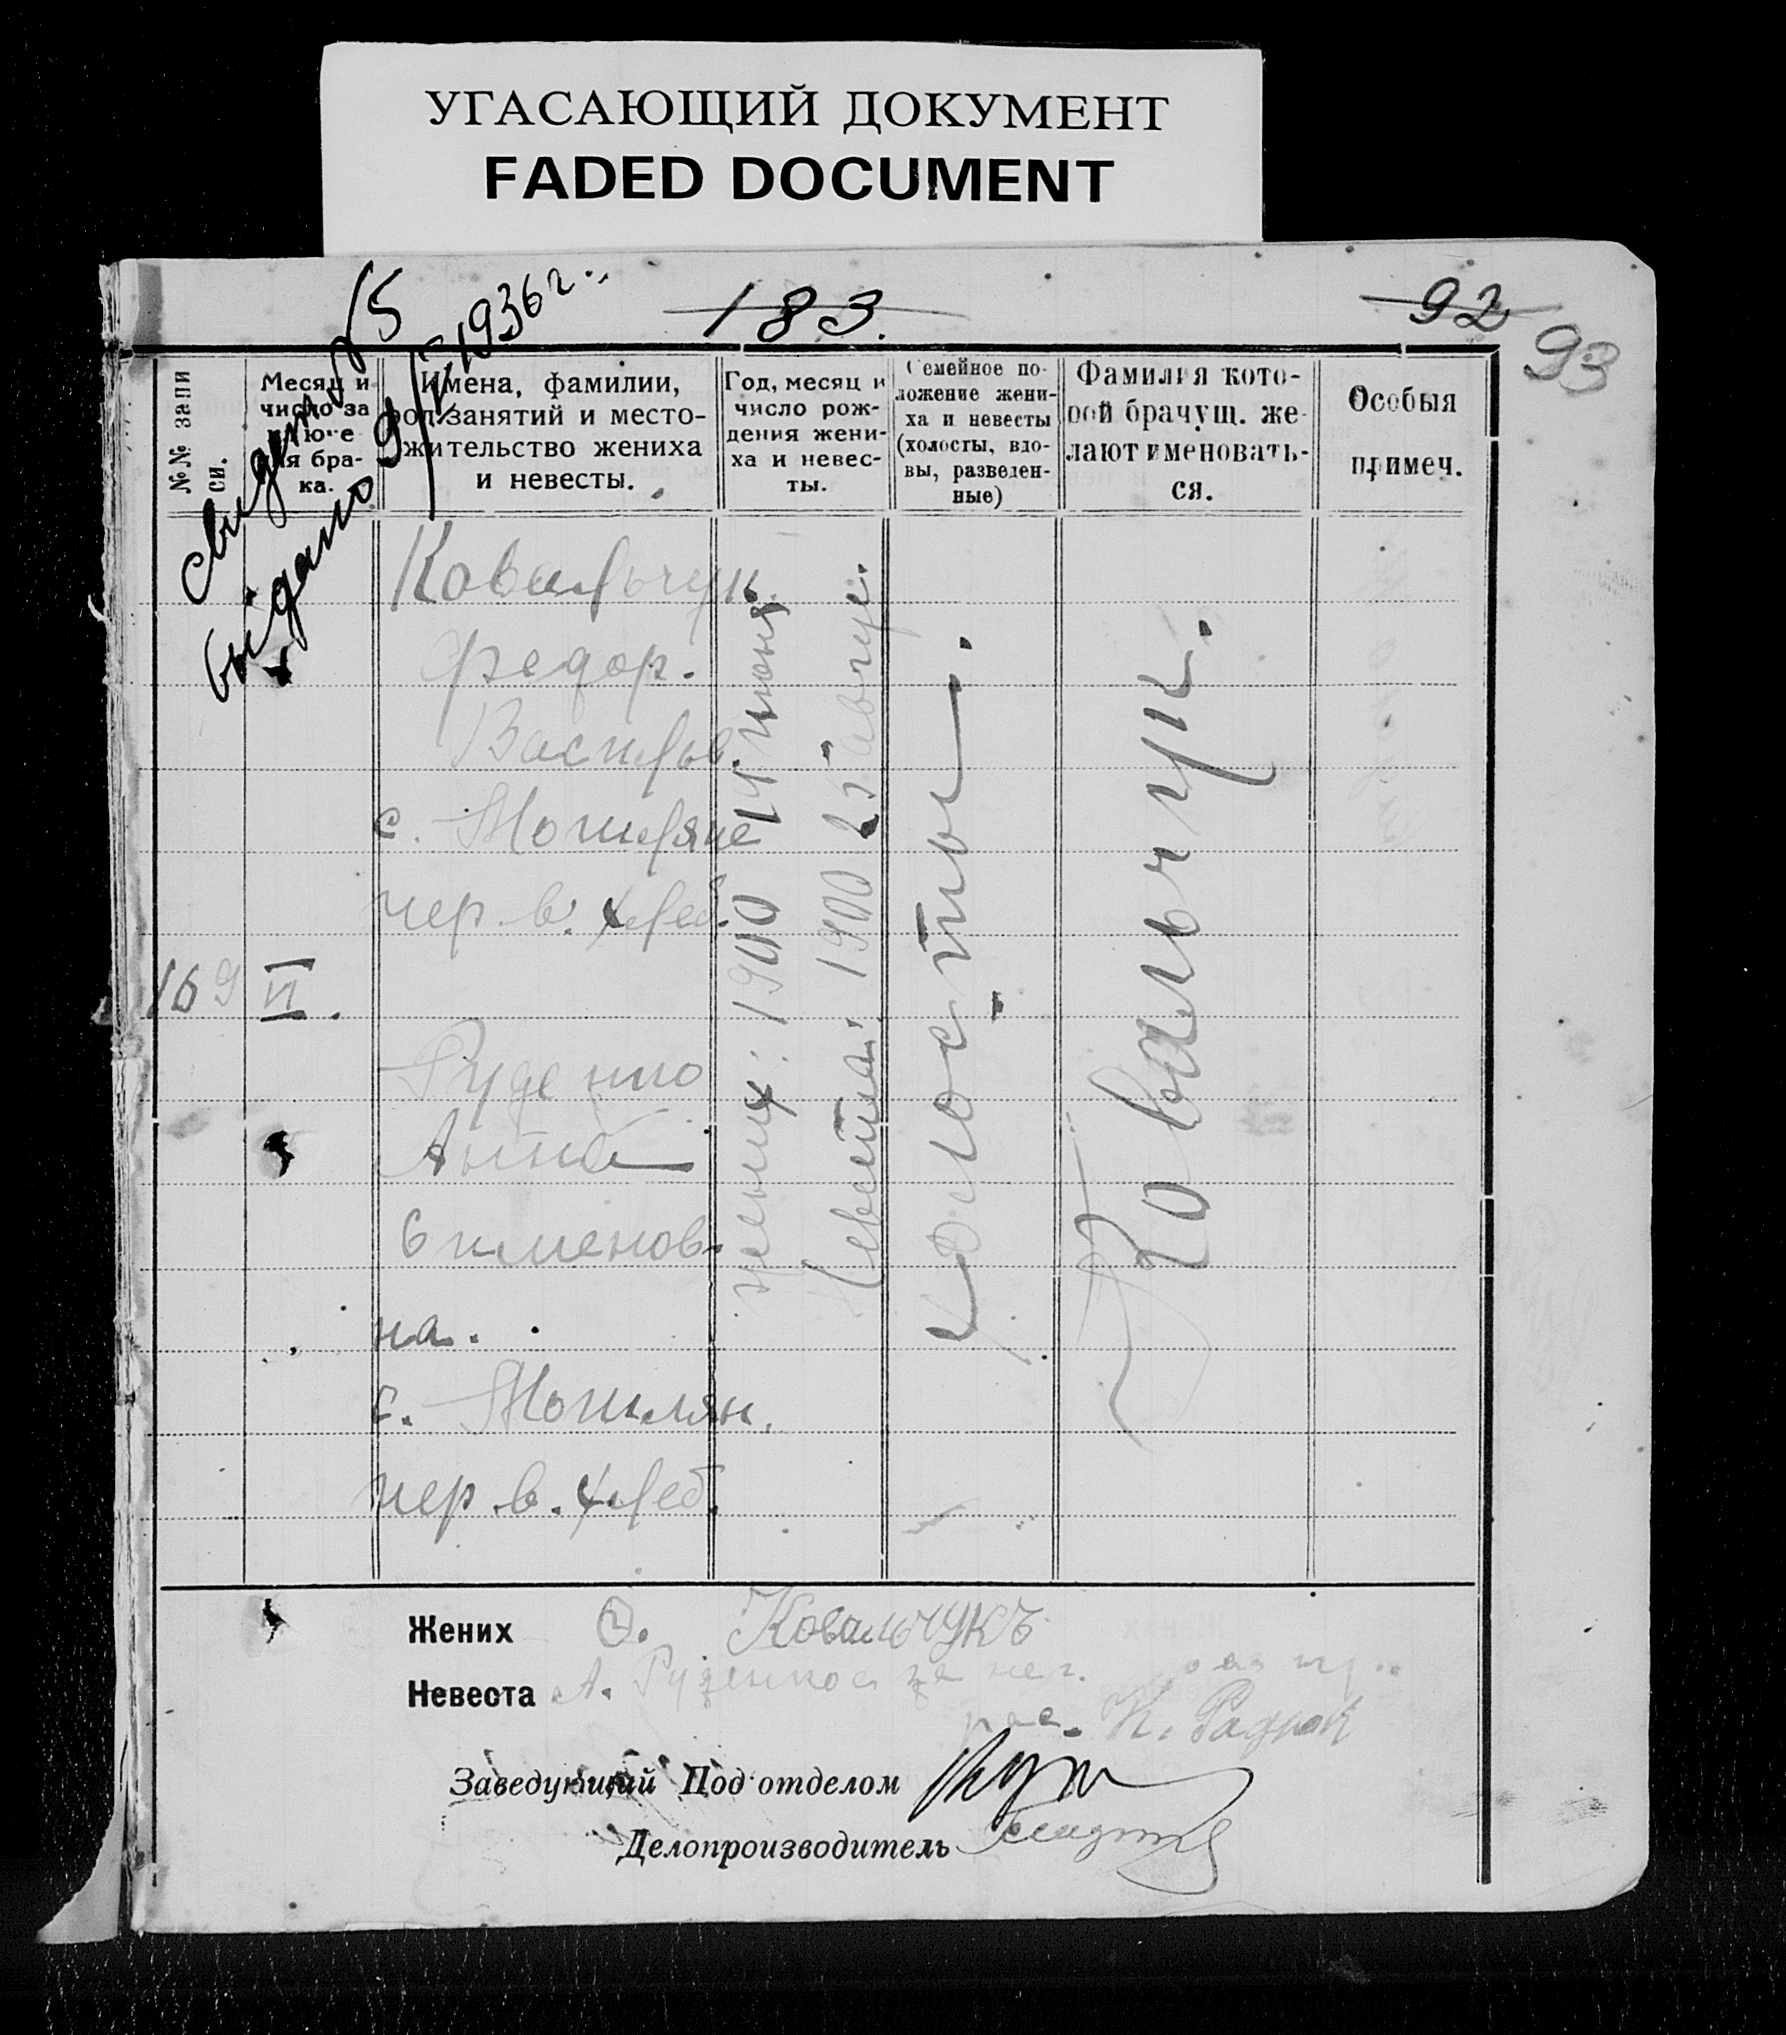 УГАСАЮЩИЙ ДОКУМЕНТ
FADED DOCUMENT
183.
92
93
выдано 9/IV 1936 г.
№№ запи
си.
Месяц и
число за
ка.
Имена, фамилии,
род занятий и место-
жительство жениха
и невесты.
Год, месяц и
число рож-
дения жени-
ха и невес-
ты.
Семейное по-
ложение жени-
ха и невесты
(холосты, вдо-
вы, разведен-
ные)
Фамилия кото-
рой брачущ. же-
лают именовать-
ся.
Особыя
примеч.
169
VI.
Ковальчук
Федор.
Васильев.
с. Могиляне
чер. в. хлеб.
Руденко
Анна
Сименов-
на.
с. Могилян.
чер. в. хлеб.
Жених: 1900 14 июня
Невеста: 1900 25 авгус.
Холосты.
Ковальчук.
Жених Ф. Ковальчукъ
Невеста А. Руденко а за нег.
рас. К. Радюк
Заведующий Под'отделом
Делопроизводитель